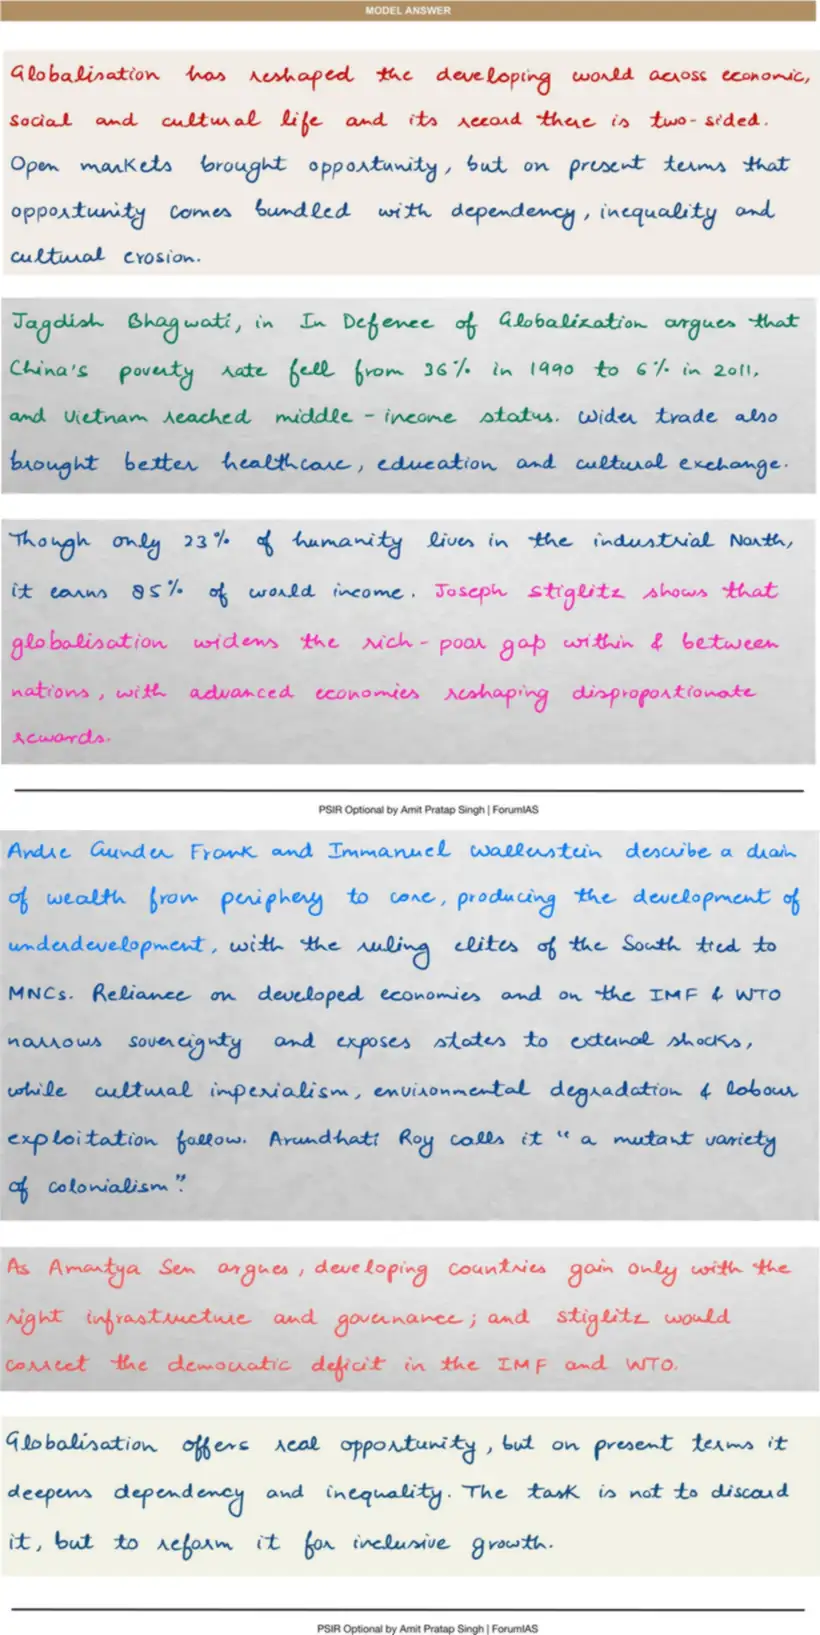 MODEL ANSWER
Globalisation has reshaped the developing world across economic,
social and cultural life and its record there is two-sided.
Open markets brought opportunity, but on present terms that
opportunity comes bundled with dependency, inequality and
cultural erosion.
Jagdish Bhagwati, in In Defence of Globalization argues that
China's poverty rate fell from 36% in 1990 to 6% in 2011,
and Vietnam reached middle-income status. Wider trade also
brought better healthcare, education and cultural exchange.
Though only 23% of humanity lives in the industrial North,
it earns 85% of world income. Joseph Stiglitz shows that
globalisation widens the rich-poor gap within & between
nations, with advanced economies reshaping disproportionate
rewards.
PSIR Optional by Amit Pratap Singh | ForumIAS
Andre Gunder Frank and Immanuel Wallerstein describe a drain
of wealth from periphery to core, producing the development of
underdevelopment, with the ruling elites of the South tied to
MNCs. Reliance on developed economies and on the IMF & WTO
narrows sovereignty and exposes states to external shocks,
while cultural imperialism, environmental degradation & labour
exploitation follow. Arundhati Roy calls it "a mutant variety
of colonialism".
As Amartya Sen argues, developing countries gain only with the
right infrastructure and governance; and Stiglitz would
correct the democratic deficit in the IMF and WTO.
Globalisation offers real opportunity, but on present terms it
deepens dependency and inequality. The task is not to discard
it, but to reform it for inclusive growth.
PSIR Optional by Amit Pratap Singh | ForumIAS